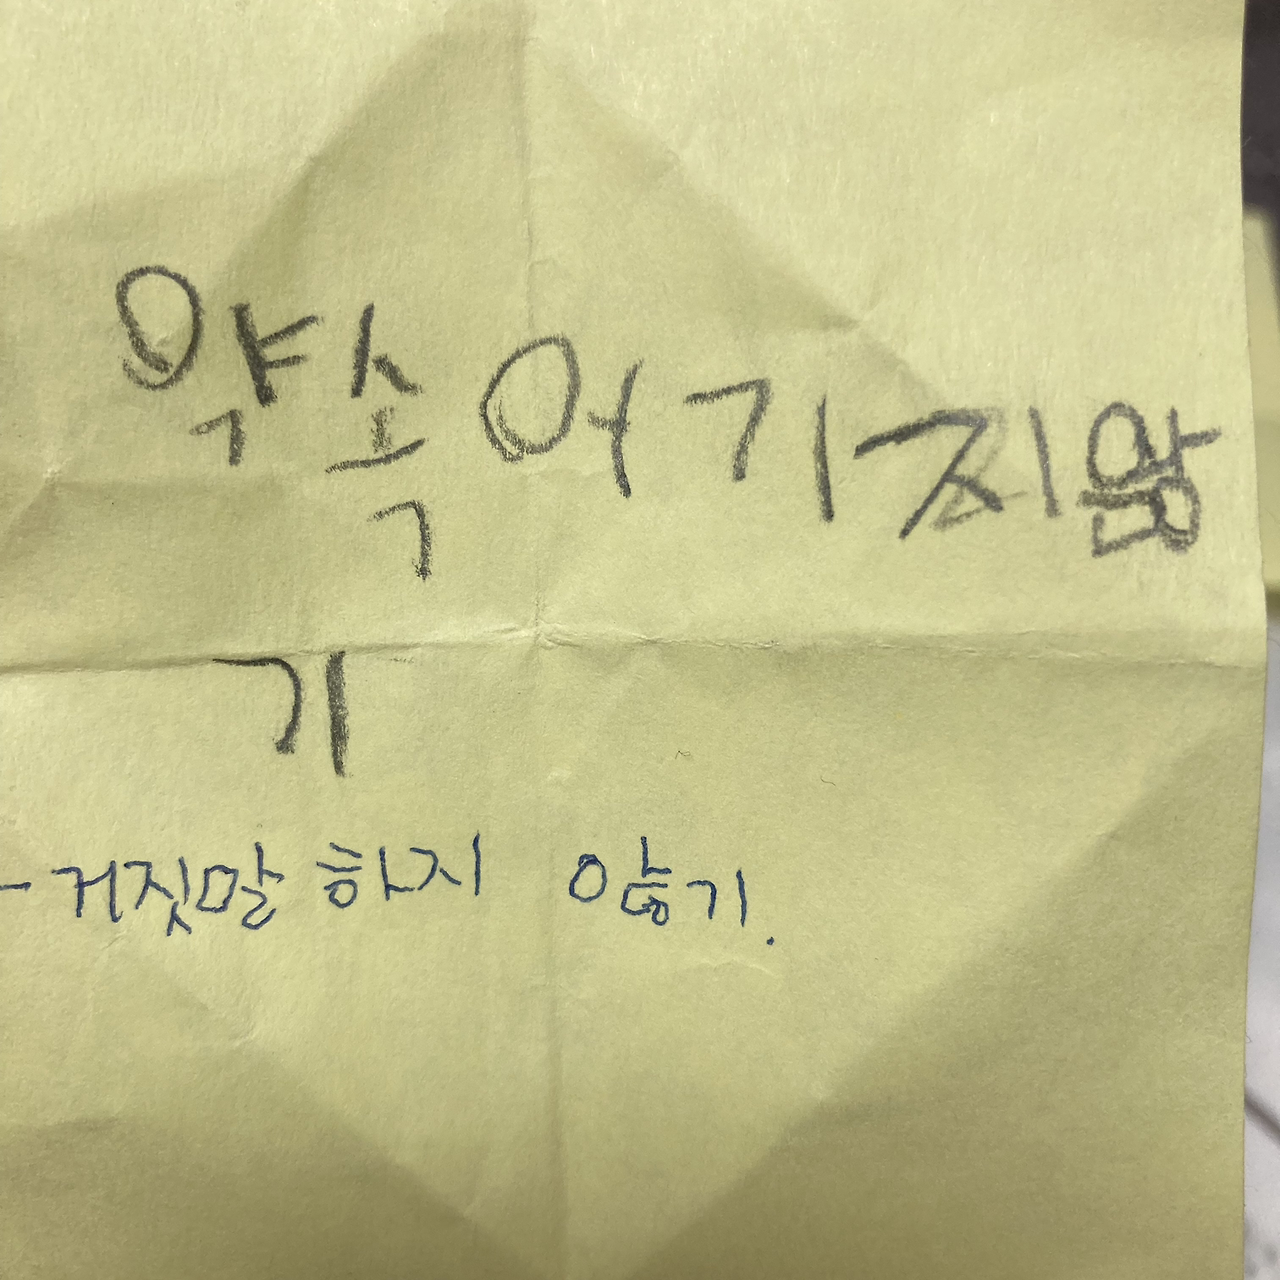 약속 어기지 않
기
- 거짓말 하지 않기.